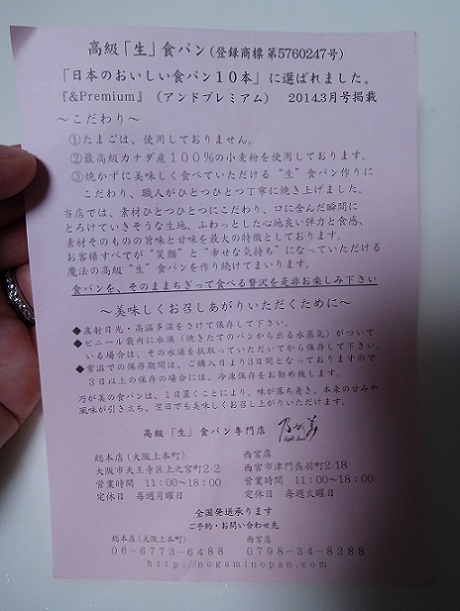 高級「生」食パン(登録商標 第5760247号)
「日本のおいしい食パン10本」に選ばれました。
『&Premium』(アンドプレミアム) 2014.3月号掲載
～こだわり～
①たまごは、使用しておりません。
②最高級カナダ産100%の小麦粉を使用しております。
③焼かずに美味しく食べていただける“生”食パン作りに
こだわり、職人がひとつひとつ丁寧に焼き上げました。
当店では、素材ひとつひとつにこだわり、口に含んだ瞬間に
とろけていきそうな生地、ふわっとした心地良い弾力と食感、
素材そのものの旨味と甘味を最大の特徴としております。
お客様すべてが“笑顔”と“幸せな気持ち”になっていただける
魔法の高級“生”食パンを作り続けてまいります。
食パンを、そのままちぎって食べる贅沢を是非お楽しみ下さい
～美味しくお召しあがりいただくために～
◆直射日光・高温多湿をさけて保存して下さい。
◆ビニール袋内に水滴(焼きたてのパンから出る水蒸気)がついて
いる場合は、その水滴を拭取っていただいてから保存して下さい。
◆常温での保存期間は、ご購入日より3日間となっておりますので
3日以上の保存の場合には、冷凍保存をお勧め致します。
乃が美のパンは、1日置くことにより、味が落ち着き、本来の甘みや
風味が引き立ち、翌日でも美味しくお召し上がりいただけます。
高級「生」食パン専門店 乃が美
総本店(大阪上本町) 西宮店
大阪市天王寺区上之宮町2-2 西宮市津門呉羽町2-18
営業時間 11:00～18:00 営業時間 11:00～18:00
定休日 毎週月曜日 定休日 毎週火曜日
全国発送承ります
ご予約・お問い合わせ先
総本店(大阪上本町) 西宮店
06-6773-6488 0798-34-8288
http://nogaminopan.com/